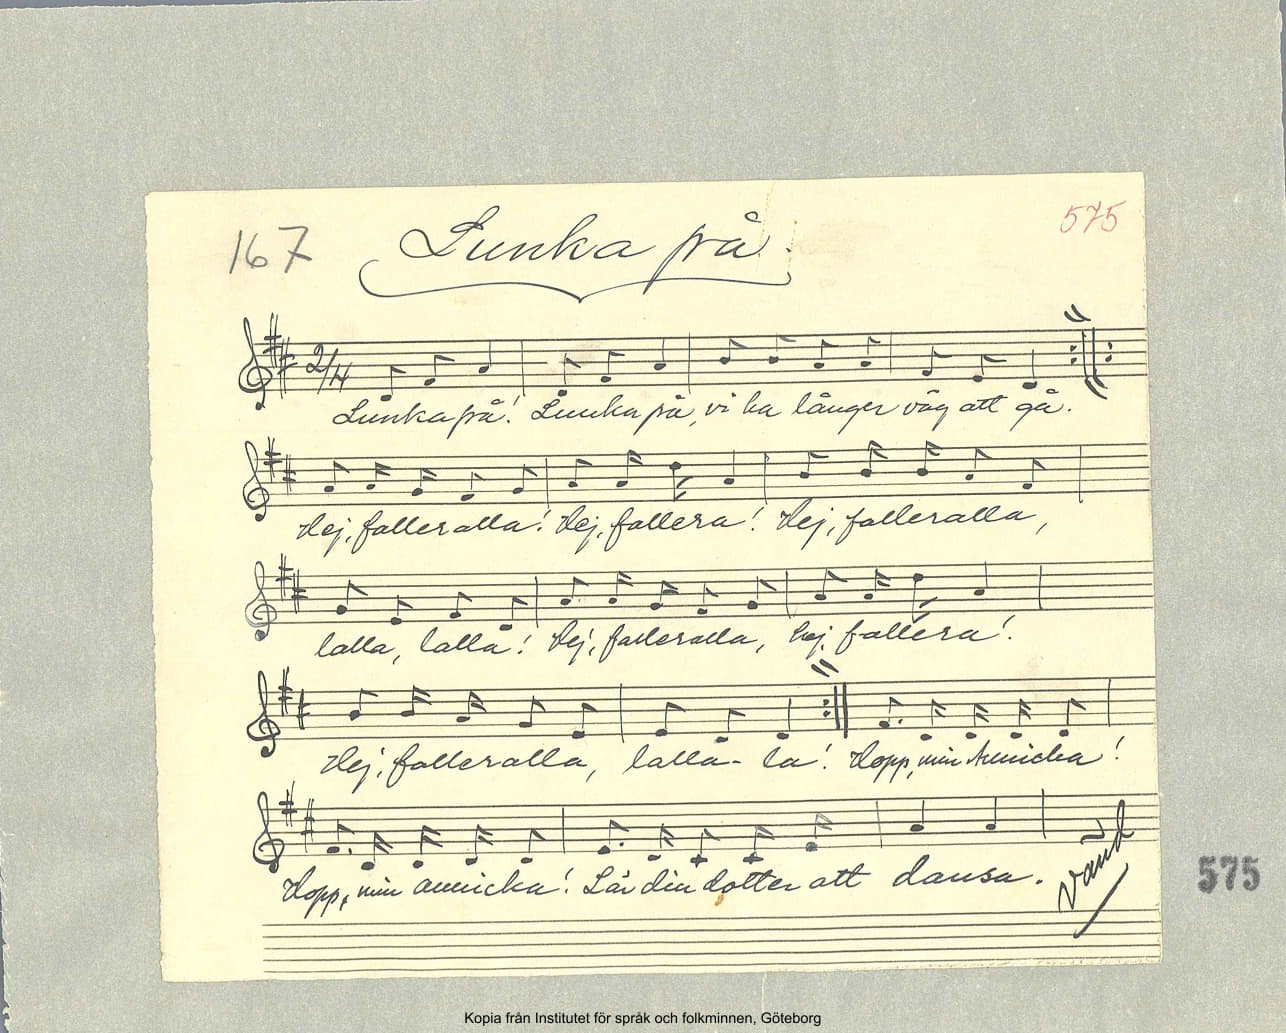 167
Lunka på.
575
2/4
Lunka på! Lunka på, vi ha långer väg att gå.
Hej, falleralla! Hej, fallera! Hej, falleralla,
lalla, lalla! Hej, falleralla, hej, fallera!
Hej, falleralla, lalla-la! Hopp, min Annicka!
Hopp, min annicka! Lär din dotter att dansa.
Vänd
575
Kopia från Institutet för språk och folkminnen, Göteborg